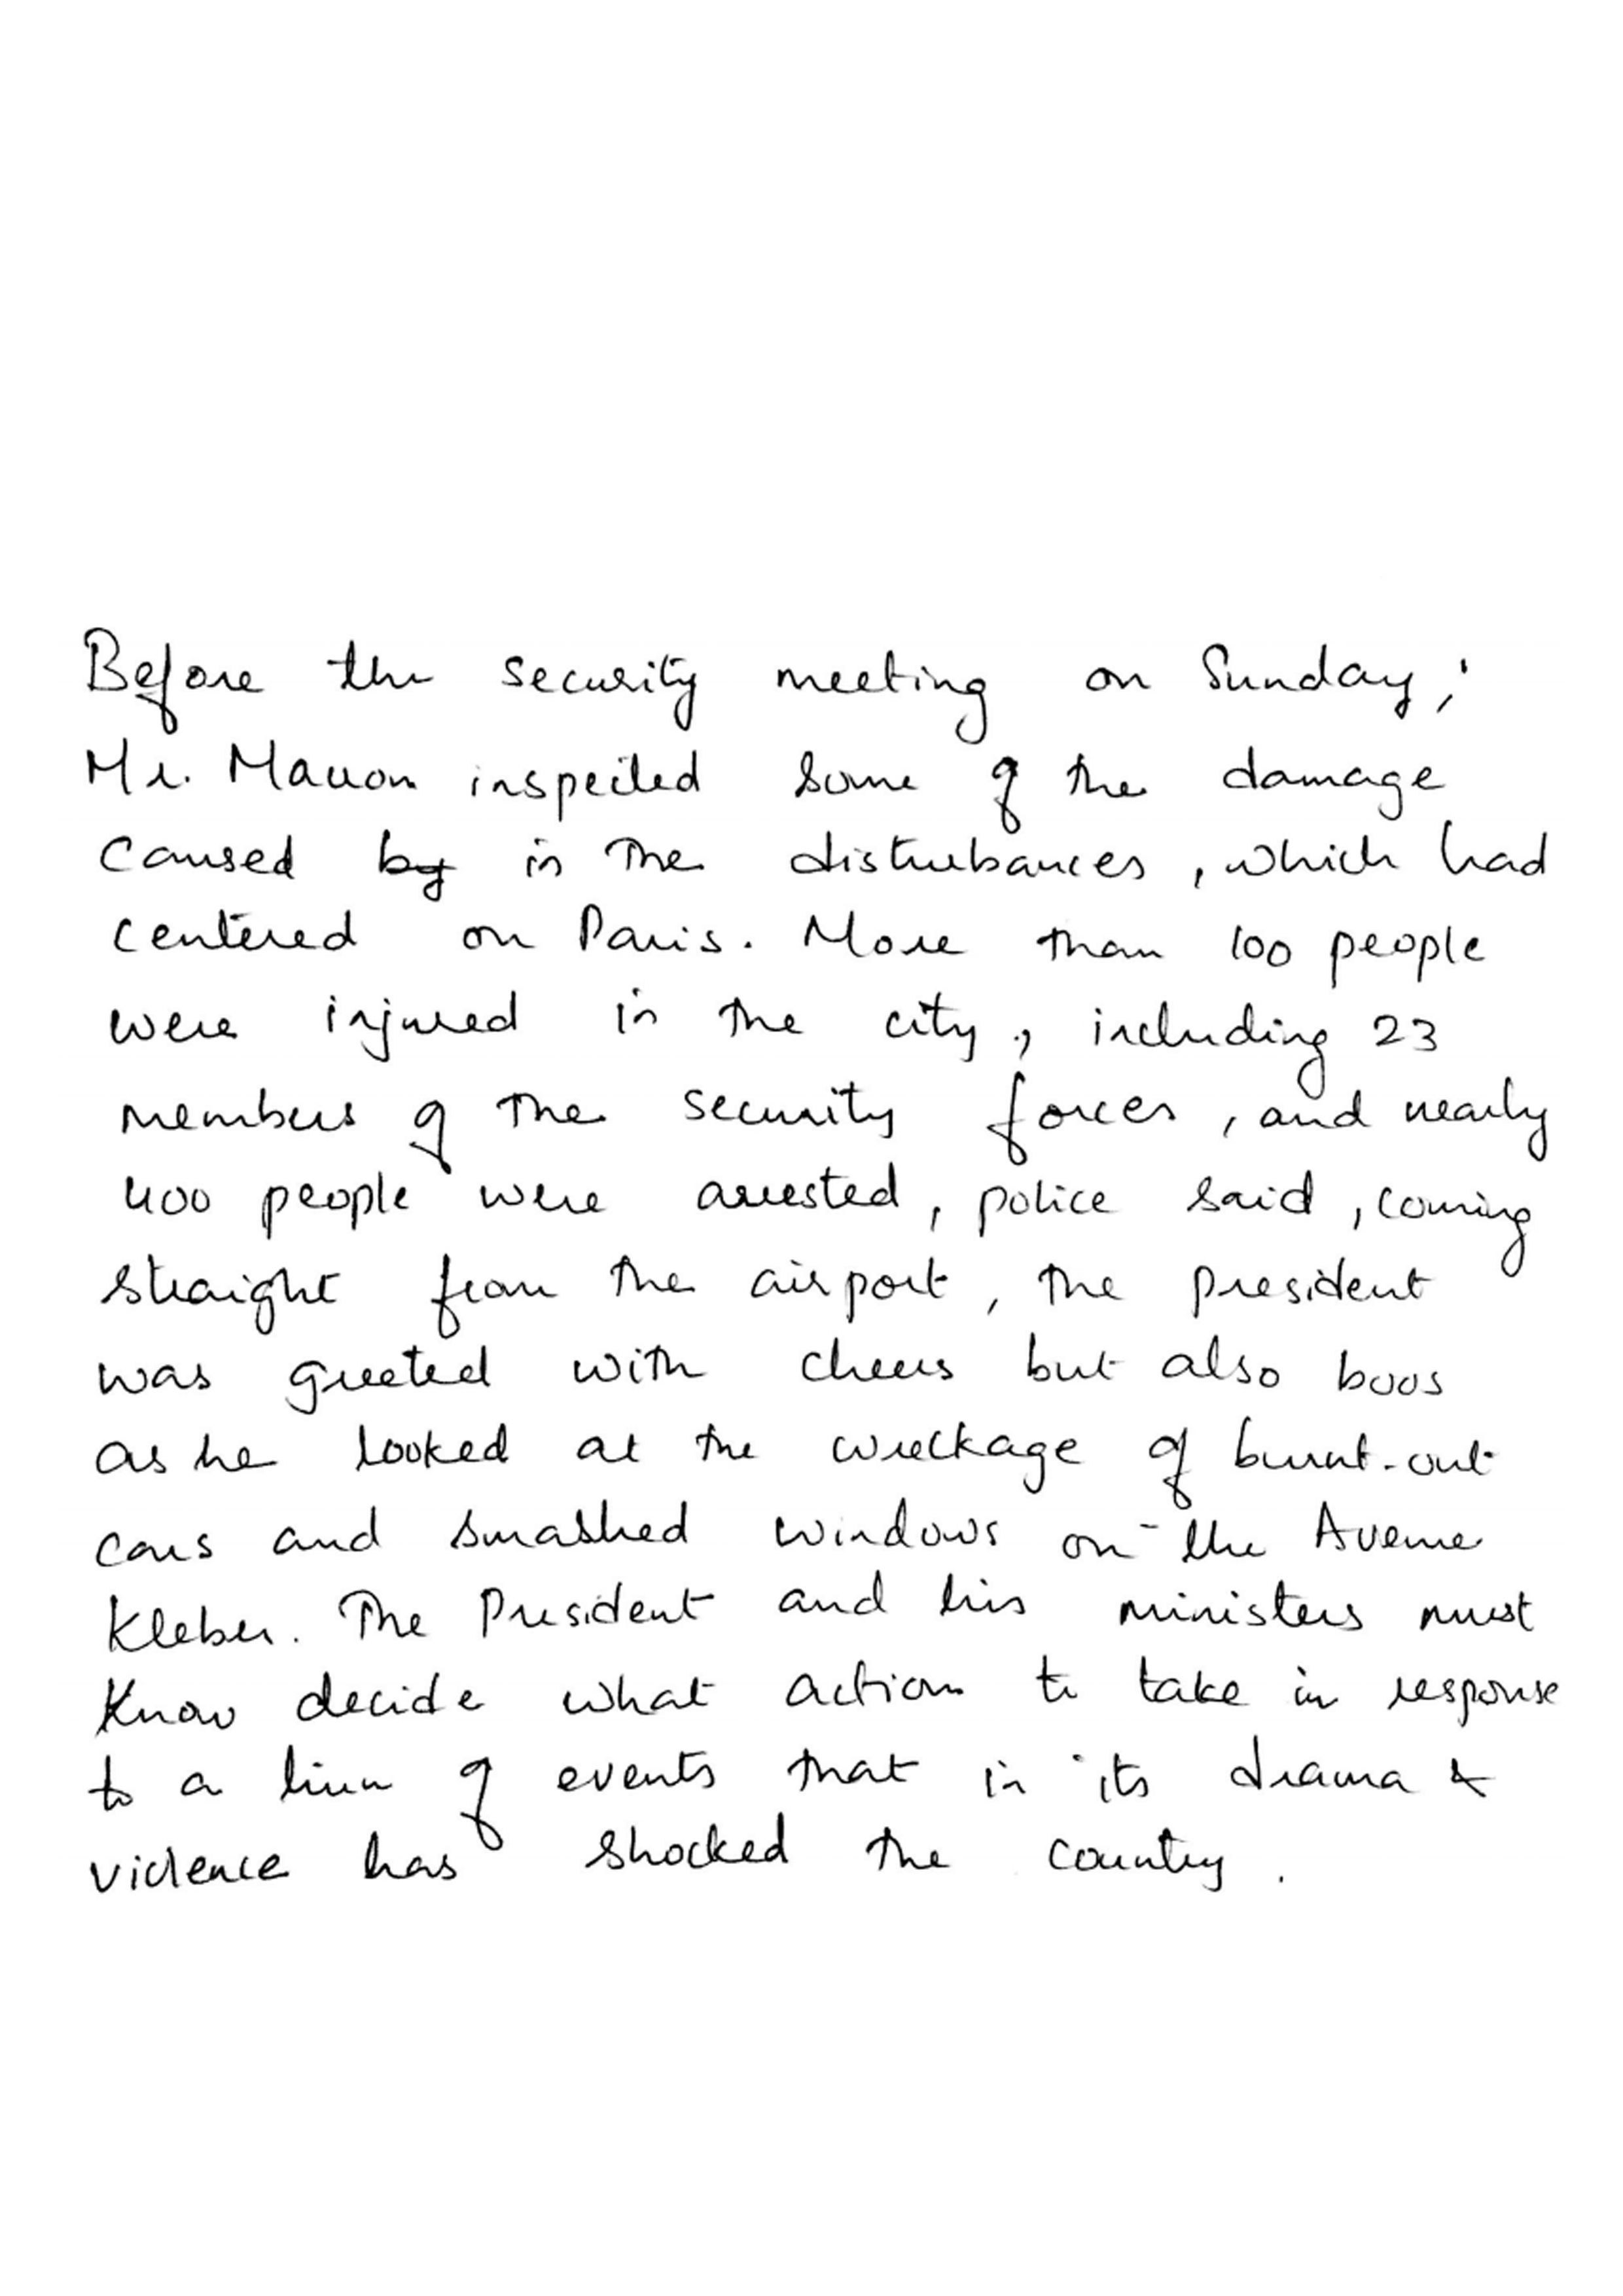 Before the security meeting on Sunday,
Mr. Macron inspected some of the damage
caused by in the disturbances, which had
centered on Paris. More than 100 people
were injured in the city, including 23
members of the security forces, and nearly
400 people were arrested, police said, coming
straight from the airport, the president
was greeted with cheers but also boos
as he looked at the wreckage of burnt-out
cars and smashed windows on the Avenue
Kleber. The President and his ministers must
know decide what action to take in response
to a of events that in its drama &
violence has shocked the country.